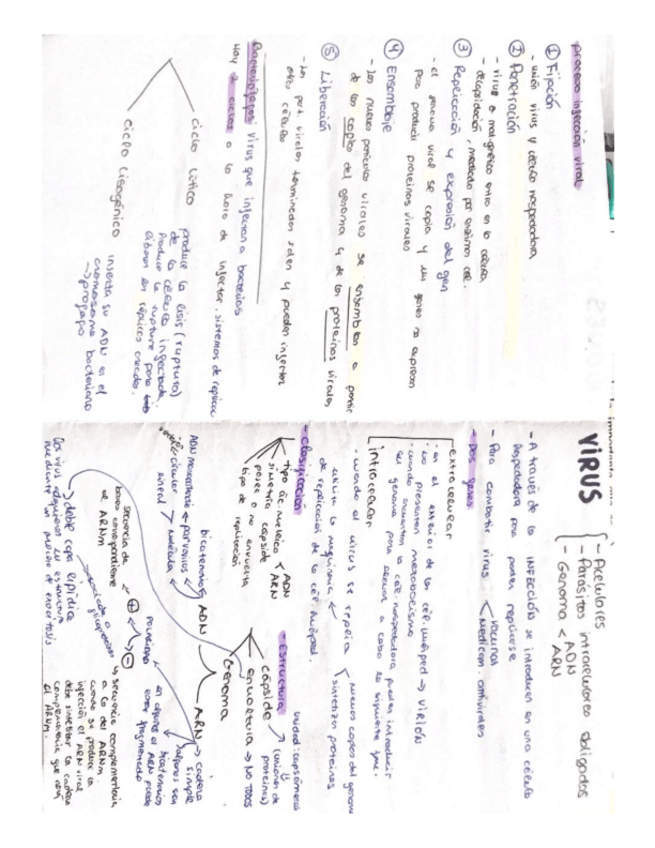 VIRUS
- Acelulares
- Parásitos intracelulares obligados
- Genoma < ADN
ARN
- A través de la INFECCIÓN se introducen en una célula
hospedadora para poder replicarse
- Para combatir virus < vacunas
Medicam. antivirales
- Dos fases
extracelular
· en el exterior de la cél. huésped → VIRIÓN
· no presentan metabolismo
· cuando encuentra la cél. hospedadora pueden introducir
su genoma para llevar a cabo la siguiente fase.
intracelular
· cuando el virus se replica
nuevas copias del genoma
sintetizan proteínas
utiliza la maquinaria
de replicación de la cél. huésped.
- Clasificación
tipo ác. nucleico < ADN
ARN
simetría cápside
posee o no envuelta
tipo de replicación
- Estructura
unidad: capsómeros
cápside → (unión de
proteínas)
envoltura → NO TODOS
Genoma
ADN
bicatenario
ADN monocatenario → parvovirus
lineal
circular
ARN → cadena
simple
algunos son
bicatenarios
en algunos el ARN puede
estar fragmentado
Polaridad
+
-
secuencia de
bases correspondiente
al ARNm
secuencia complementaria
a la del ARNm
cuando se produce la
infección el ARN viral
debe sintetizar la cadena
complementaria que será
el ARNm.
→ doble capa lipídica
asociada a
glicoproteínas
Los virus adquieren su estructura
mediante un proceso de exocitosis
proceso infección viral
① Fijación
- unión virus y célula hospedadora
② Penetración
- virus o mat. genético entra en la célula
- decapsidación, mediado por enzimas cél.
③ Replicación y expresión del gen
- el genoma viral se copia y los genes se expresan
para producir proteínas virales
④ Ensamblaje
- Las nuevas partículas virales se ensamblan a partir
de las copias del genoma y de las proteínas virales
⑤ Liberación
- Las part. virales terminadas salen y pueden infectar
otras células
Bacteriófagos virus que infectan a bacterias
Hay 2 ciclos a la hora de infectar. sistemas de replica
ciclo lítico
produce la lisis (ruptura)
de la célula infectada.
Produce la ruptura para
liberar las réplicas creadas.
ciclo lisogénico
inserta su ADN en el
cromosoma bacteriano
→ profago